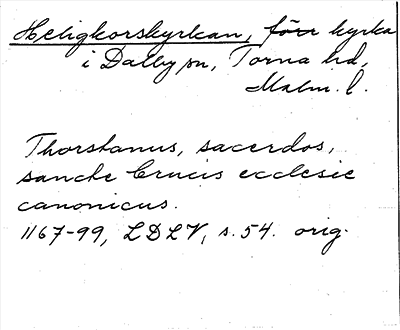 Heligkorskyrkan, förr kyrka
i Dalby sn, Torna hd,
Malm. l.
Thorstanus, sacerdos,
sancte Crucis ecclesie
canonicus.
1167-99, LDLV, s. 54. orig.